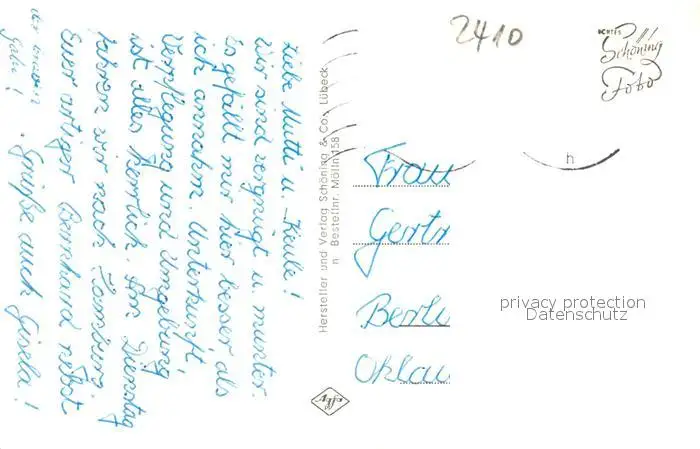 Liebe Mutti u. - Keule!
Wir sind vergnügt u. munter.
Es gefällt mir hier besser als
ich annahm. Unterkunft,
Verpflegung und Umgebung
ist alles herrlich. Am Dienstag
fahren wir nach Hamburg
Euer artiger Bernhard nebst
Grüße auch Gisela!
Hersteller und Verlag Schöning & Co., Lübeck
n Bestellnr. Mölln 158
Agfa
2410
ECHTES
Schöning
Foto
h
Frau
Gertr
Berli
Oklau
privacy protection
Datenschutz